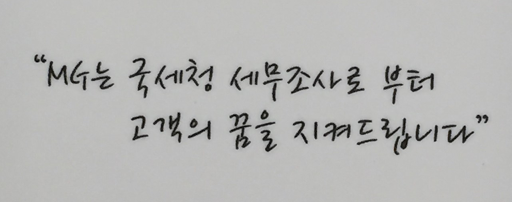 “MG는 국세청 세무조사로 부터
고객의 꿈을 지켜드립니다”